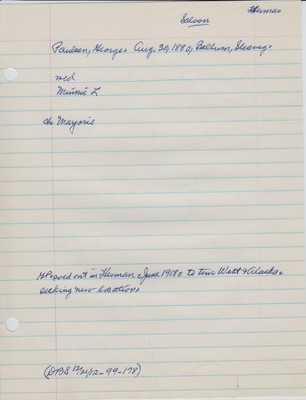 Herman
Saloon
Paulsen, George Aug. 30, 1880, Bellum, Slesvig.
wed
Minnie L
ch Marjorie
GP sold out in Herman June 1918 to tour West & Alaska
seeking new location.
(DPBS 12/21/12-99-178)